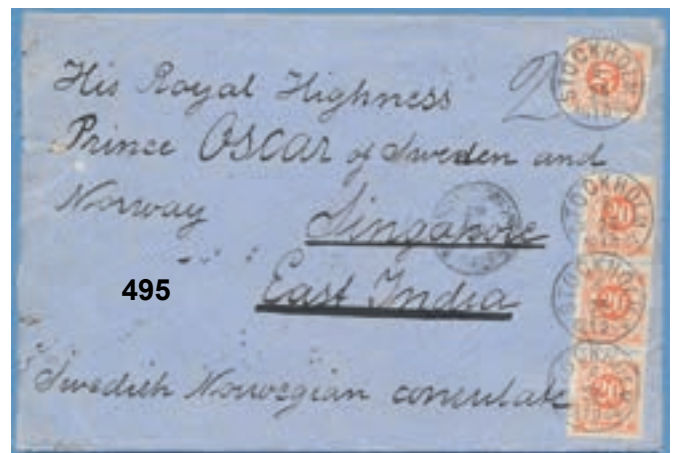 His Royal Highness 2
Prince OSCAR of Sweden and
Norway Singapore
495 East India
Swedish Norwegian consulate
STOCKHOLM
STOCKHOLM
20
STOCKHOLM
20
20